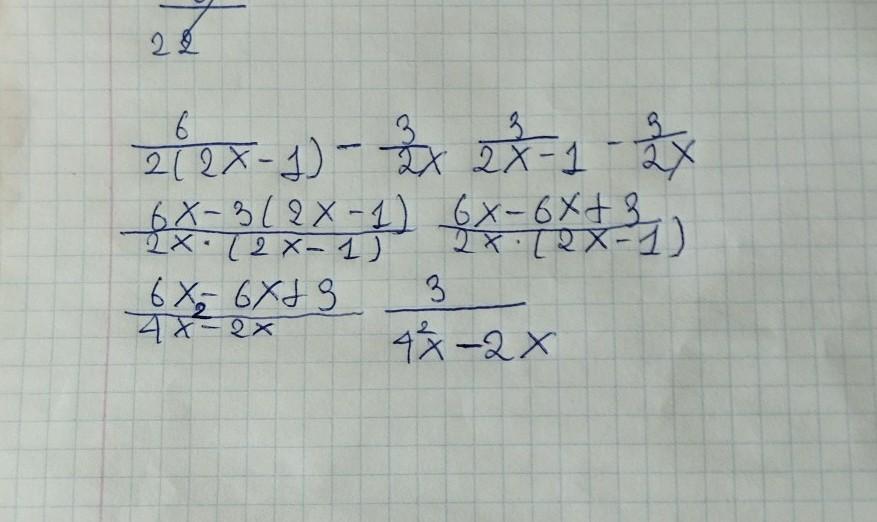 22
6/2(2x-1) - 3/2x 3/2x-1 - 3/2x
6x-3(2x-1)/2x·(2x-1) 6x-6x+3/2x·(2x-1)
6x-6x+3/4x²-2x 3/4²x-2x